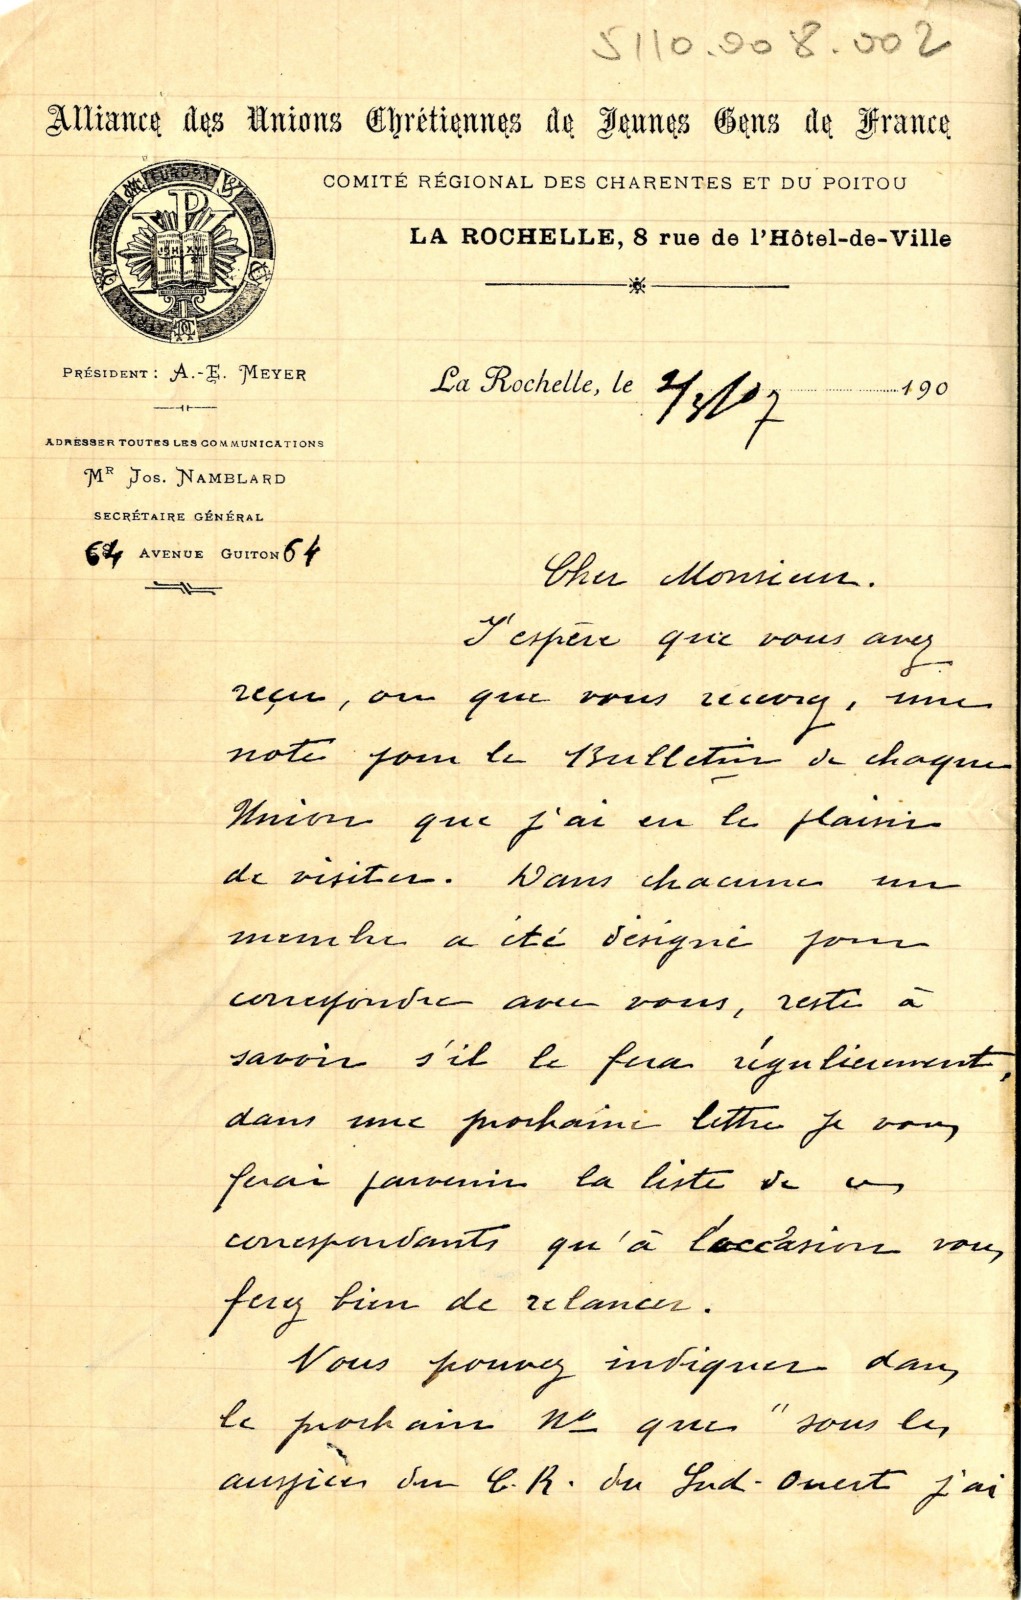 5110.008.002
Alliance des Unions Chrétiennes de Jeunes Gens de France
COMITÉ RÉGIONAL DES CHARENTES ET DU POITOU
LA ROCHELLE, 8 rue de l'Hôtel-de-Ville
EUROPA
ASIA
AMERICA
JOH XVII
PRÉSIDENT : A.-E. MEYER
ADRESSER TOUTES LES COMMUNICATIONS
Mr JOS. NAMBLARD
SECRÉTAIRE GÉNÉRAL
64 AVENUE GUITON 64
La Rochelle, le 2/3/07 190
Cher Monsieur.
J'espère que vous avez
reçu, ou que vous recevez, une
note pour le Bulletin de chaque
Union que j'ai eu le plaisir
de visiter. Dans chacune un
membre a été désigné pour
correspondre avec vous, reste à
savoir s'il le fera régulièrement,
dans une prochaine lettre je vous
ferai parvenir la liste de ces
correspondants qu'à l'occasion vous
ferez bien de relancer.
Vous pouvez indiquer dans
le prochain No que "sous les
auspices du C.R. du Sud-Ouest j'ai